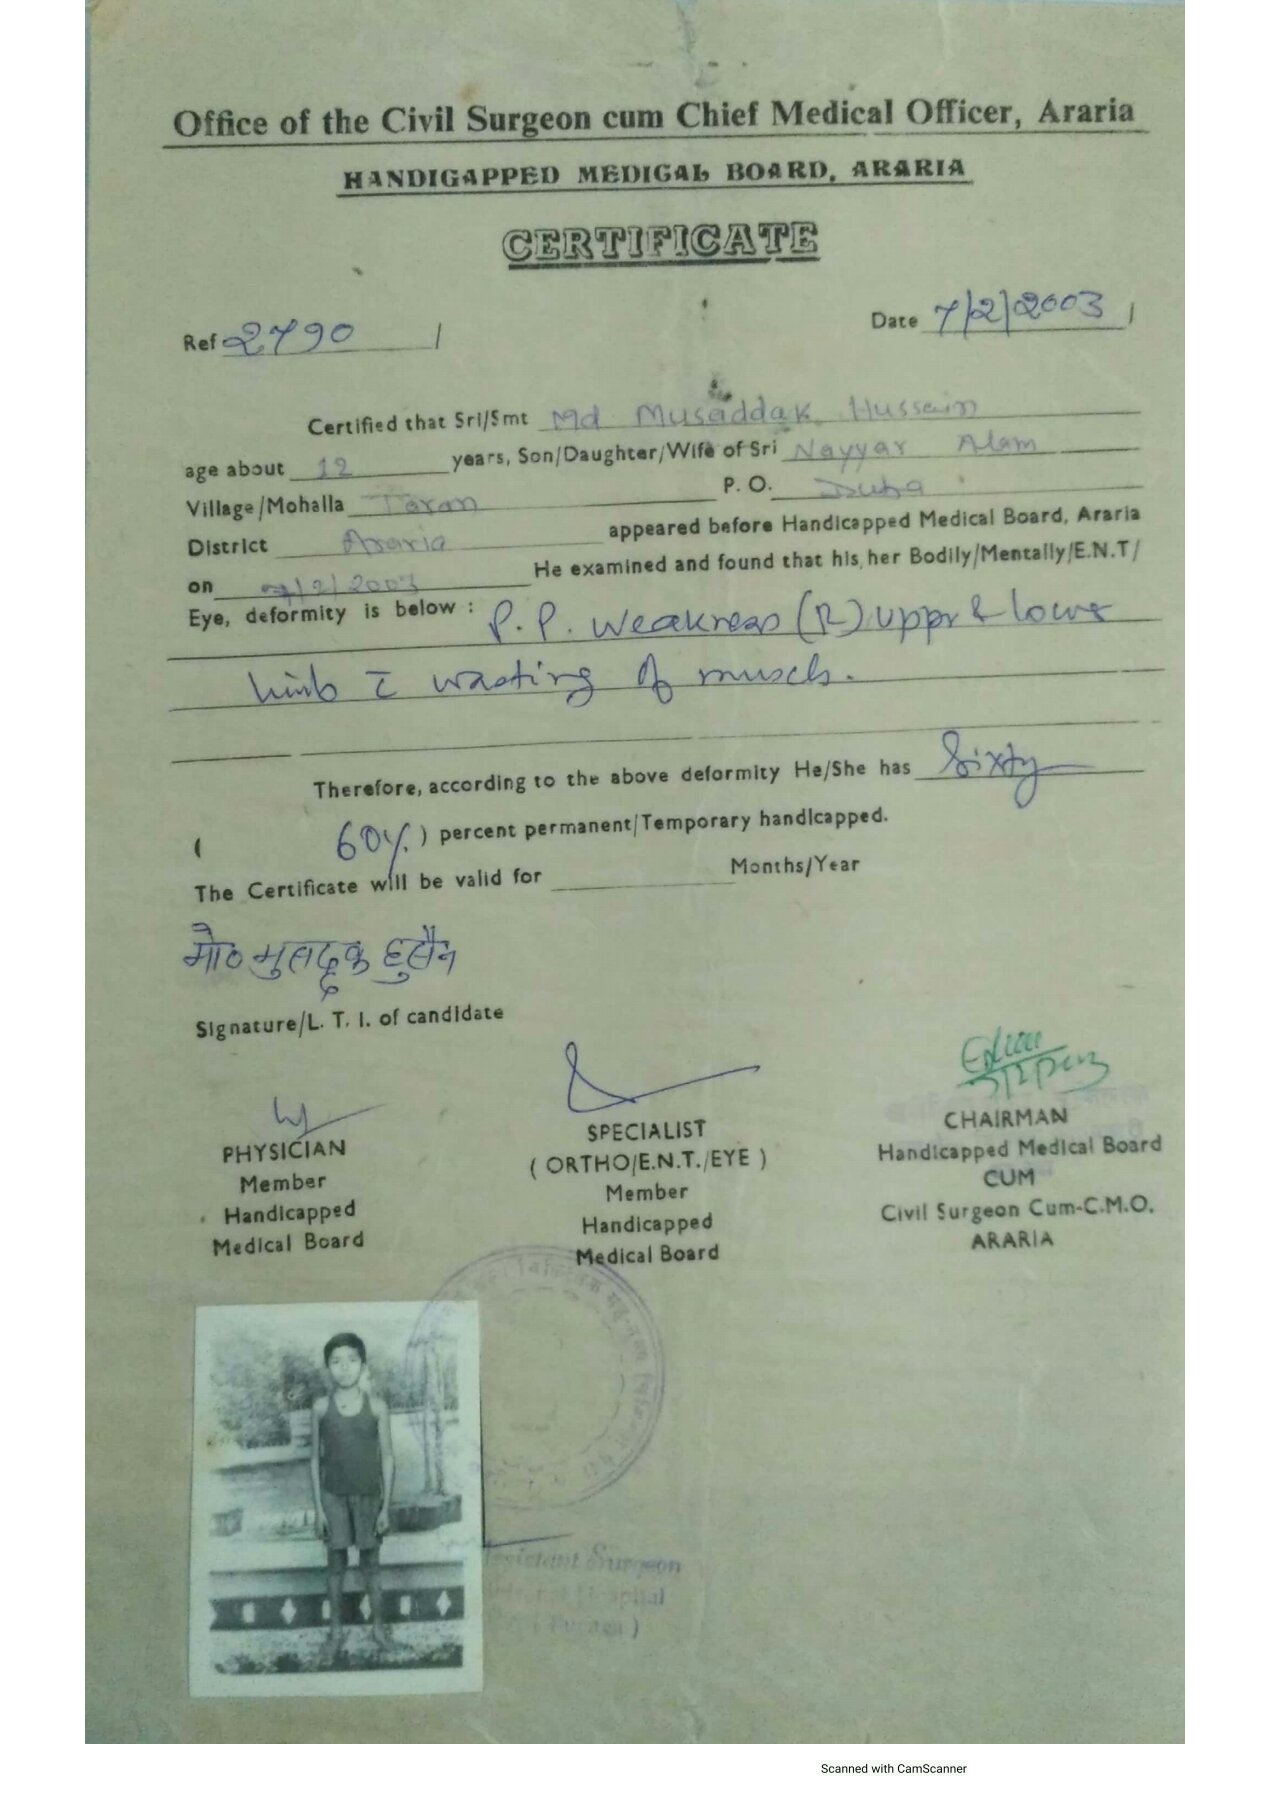 Office of the Civil Surgeon cum Chief Medical Officer, Araria
HANDIGAPPED MEDIGAL BOARD, ARARIA
CERTIFICATE
Ref 2790
Date 7/2/2003
Certified that Sri/Smt Md Musaddak Hussain
age about 12 years, Son/Daughter/Wife of Sri Nayyar Alam
Village/Mohalla Taran P. O. Duba
District Araria appeared before Handicapped Medical Board, Araria
on 7/2/2003 He examined and found that his,her Bodily/Mentally/E.N.T/
Eye, deformity is below : P.P. weakness (R) uppr & lower
limb c̄ wasting of muscls.
Therefore, according to the above deformity He/She has Sixty
( 60%. ) percent permanent/Temporary handicapped.
The Certificate will be valid for Months/Year
मो० मुसद्दक हुसैन
Signature/L. T. I. of candidate
7/2/2003
PHYSICIAN
Member
Handicapped
Medical Board
SPECIALIST
( ORTHO/E.N.T./EYE )
Member
Handicapped
Medical Board
CHAIRMAN
Handicapped Medical Board
CUM
Civil Surgeon Cum-C.M.O.
ARARIA
Assistant Surgeon
Hospital
Scanned with CamScanner